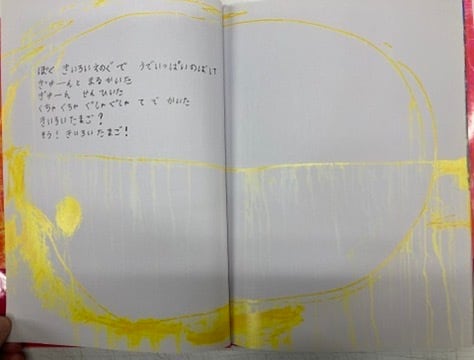 ぼく きいろいえのぐ で うでいっぱいのばして
ぎゅーんと まる かいた
ぎゅーん せん ひいた
くちゃくちゃ ぐしゃぐしゃ て で かいた
きいろいたまご？
そう！きいろいたまご！